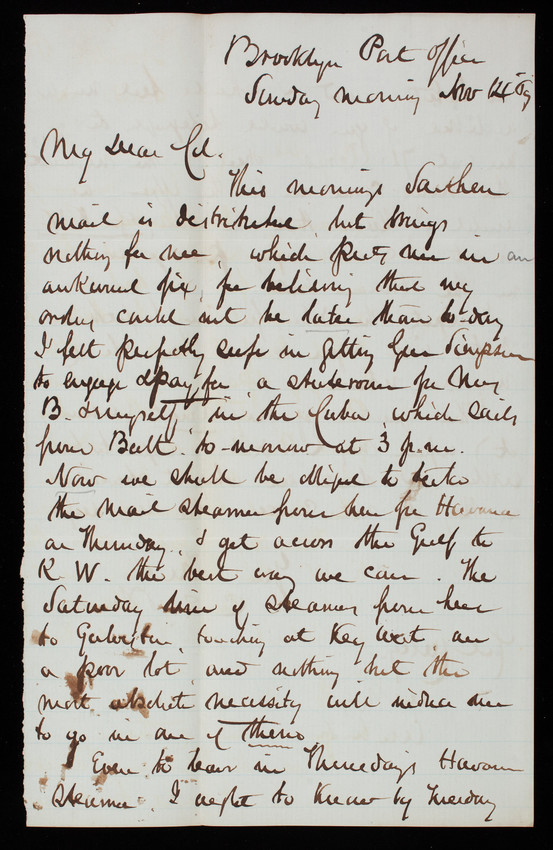 Brooklyn Post Office
Sunday morning Nov 14th
My Dear Col.
This mornings Southern
mail is distributed, but brings
nothing for me, which puts me in an
awkward fix, for believing that my
orders could not be later than to-day
I felt perfectly safe in getting Gen Simpson
to engage & pay for, a stateroom for Mrs
B. & myself in the Cuba, which sails
from Balt. to-morrow at 3 p.m.
Now we shall be obliged to take
the mail steamer from here for Havana
on Thursday, & get across the Gulf to
K W. the best way we can. The
Saturday line of steamers from here
to Galveston, touching at Key West, are
a poor lot, and nothing but the
most absolute necessity will induce me
to go in one of them.
Even to leave in Thursdays Havana
steamer, I ought to know by Tuesday